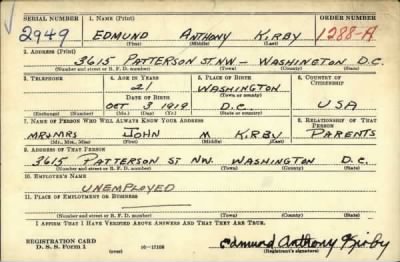 SERIAL NUMBER 1. NAME (Print) ORDER NUMBER
2949 EDMUND ANTHONY KIRBY 1288-A
(First) (Middle) (Last)
2. ADDRESS (Print)
3615 PATTERSON ST. NW - WASHINGTON D.C.
(Number and street or R. F. D. number) (Town) (County) (State)
3. TELEPHONE 4. AGE IN YEARS 5. PLACE OF BIRTH 6. COUNTRY OF CITIZENSHIP
21 WASHINGTON
DATE OF BIRTH (Town or county)
OCT 3 1919 D.C. USA
(Exchange) (Number) (Mo.) (Day) (Yr.) (State or country)
7. NAME OF PERSON WHO WILL ALWAYS KNOW YOUR ADDRESS 8. RELATIONSHIP OF THAT PERSON
MR & MRS JOHN M KIRBY PARENTS
(Mr., Mrs., Miss) (First) (Middle) (Last)
9. ADDRESS OF THAT PERSON
3615 PATTERSON ST NW. WASHINGTON D.C.
(Number and street or R. F. D. number) (Town) (County) (State)
10. EMPLOYER'S NAME
UNEMPLOYED
11. PLACE OF EMPLOYMENT OR BUSINESS
(Number and street or R. F. D. number) (Town) (County) (State)
I AFFIRM THAT I HAVE VERIFIED ABOVE ANSWERS AND THAT THEY ARE TRUE.
REGISTRATION CARD
D. S. S. Form 1 16-17105 Edmund Anthony Kirby
(over) (Registrant's signature)